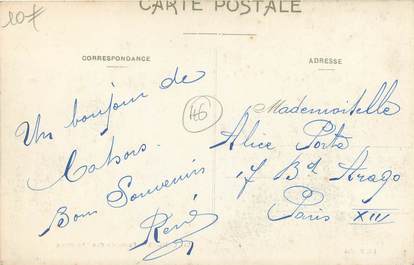 CARTE POSTALE
10f
CORRESPONDANCE
ADRESSE
Un bonjour de
Cahors.
Bons Souvenirs
René
46
Mademoiselle
Alice Porte
17 Bd Arago
Paris XIII